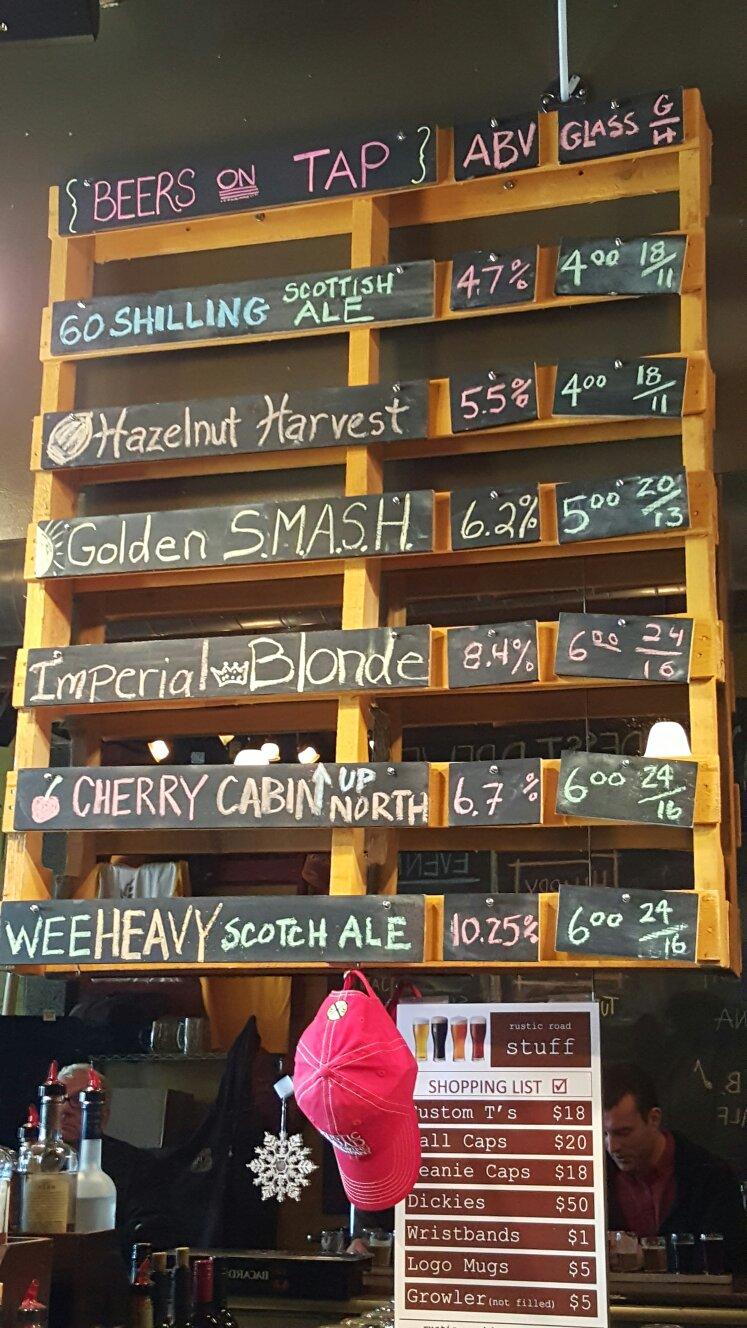 { BEERS ON TAP } ABV GLASS G/H
60 SHILLING SCOTTISH ALE 4.7% 4⁰⁰ 18/11
Hazelnut Harvest 5.5% 4⁰⁰ 18/11
Golden S.M.A.S.H. 6.2% 5⁰⁰ 20/13
Imperial Blonde 8.4% 6⁰⁰ 24/16
CHERRY CABIN UP NORTH 6.7% 6⁰⁰ 24/16
WEE HEAVY SCOTCH ALE 10.25% 6⁰⁰ 24/16
rustic road
stuff
SHOPPING LIST
ustom T's $18
all Caps $20
eanie Caps $18
Dickies $50
Wristbands $1
Logo Mugs $5
Growler (not filled) $5
BACARD